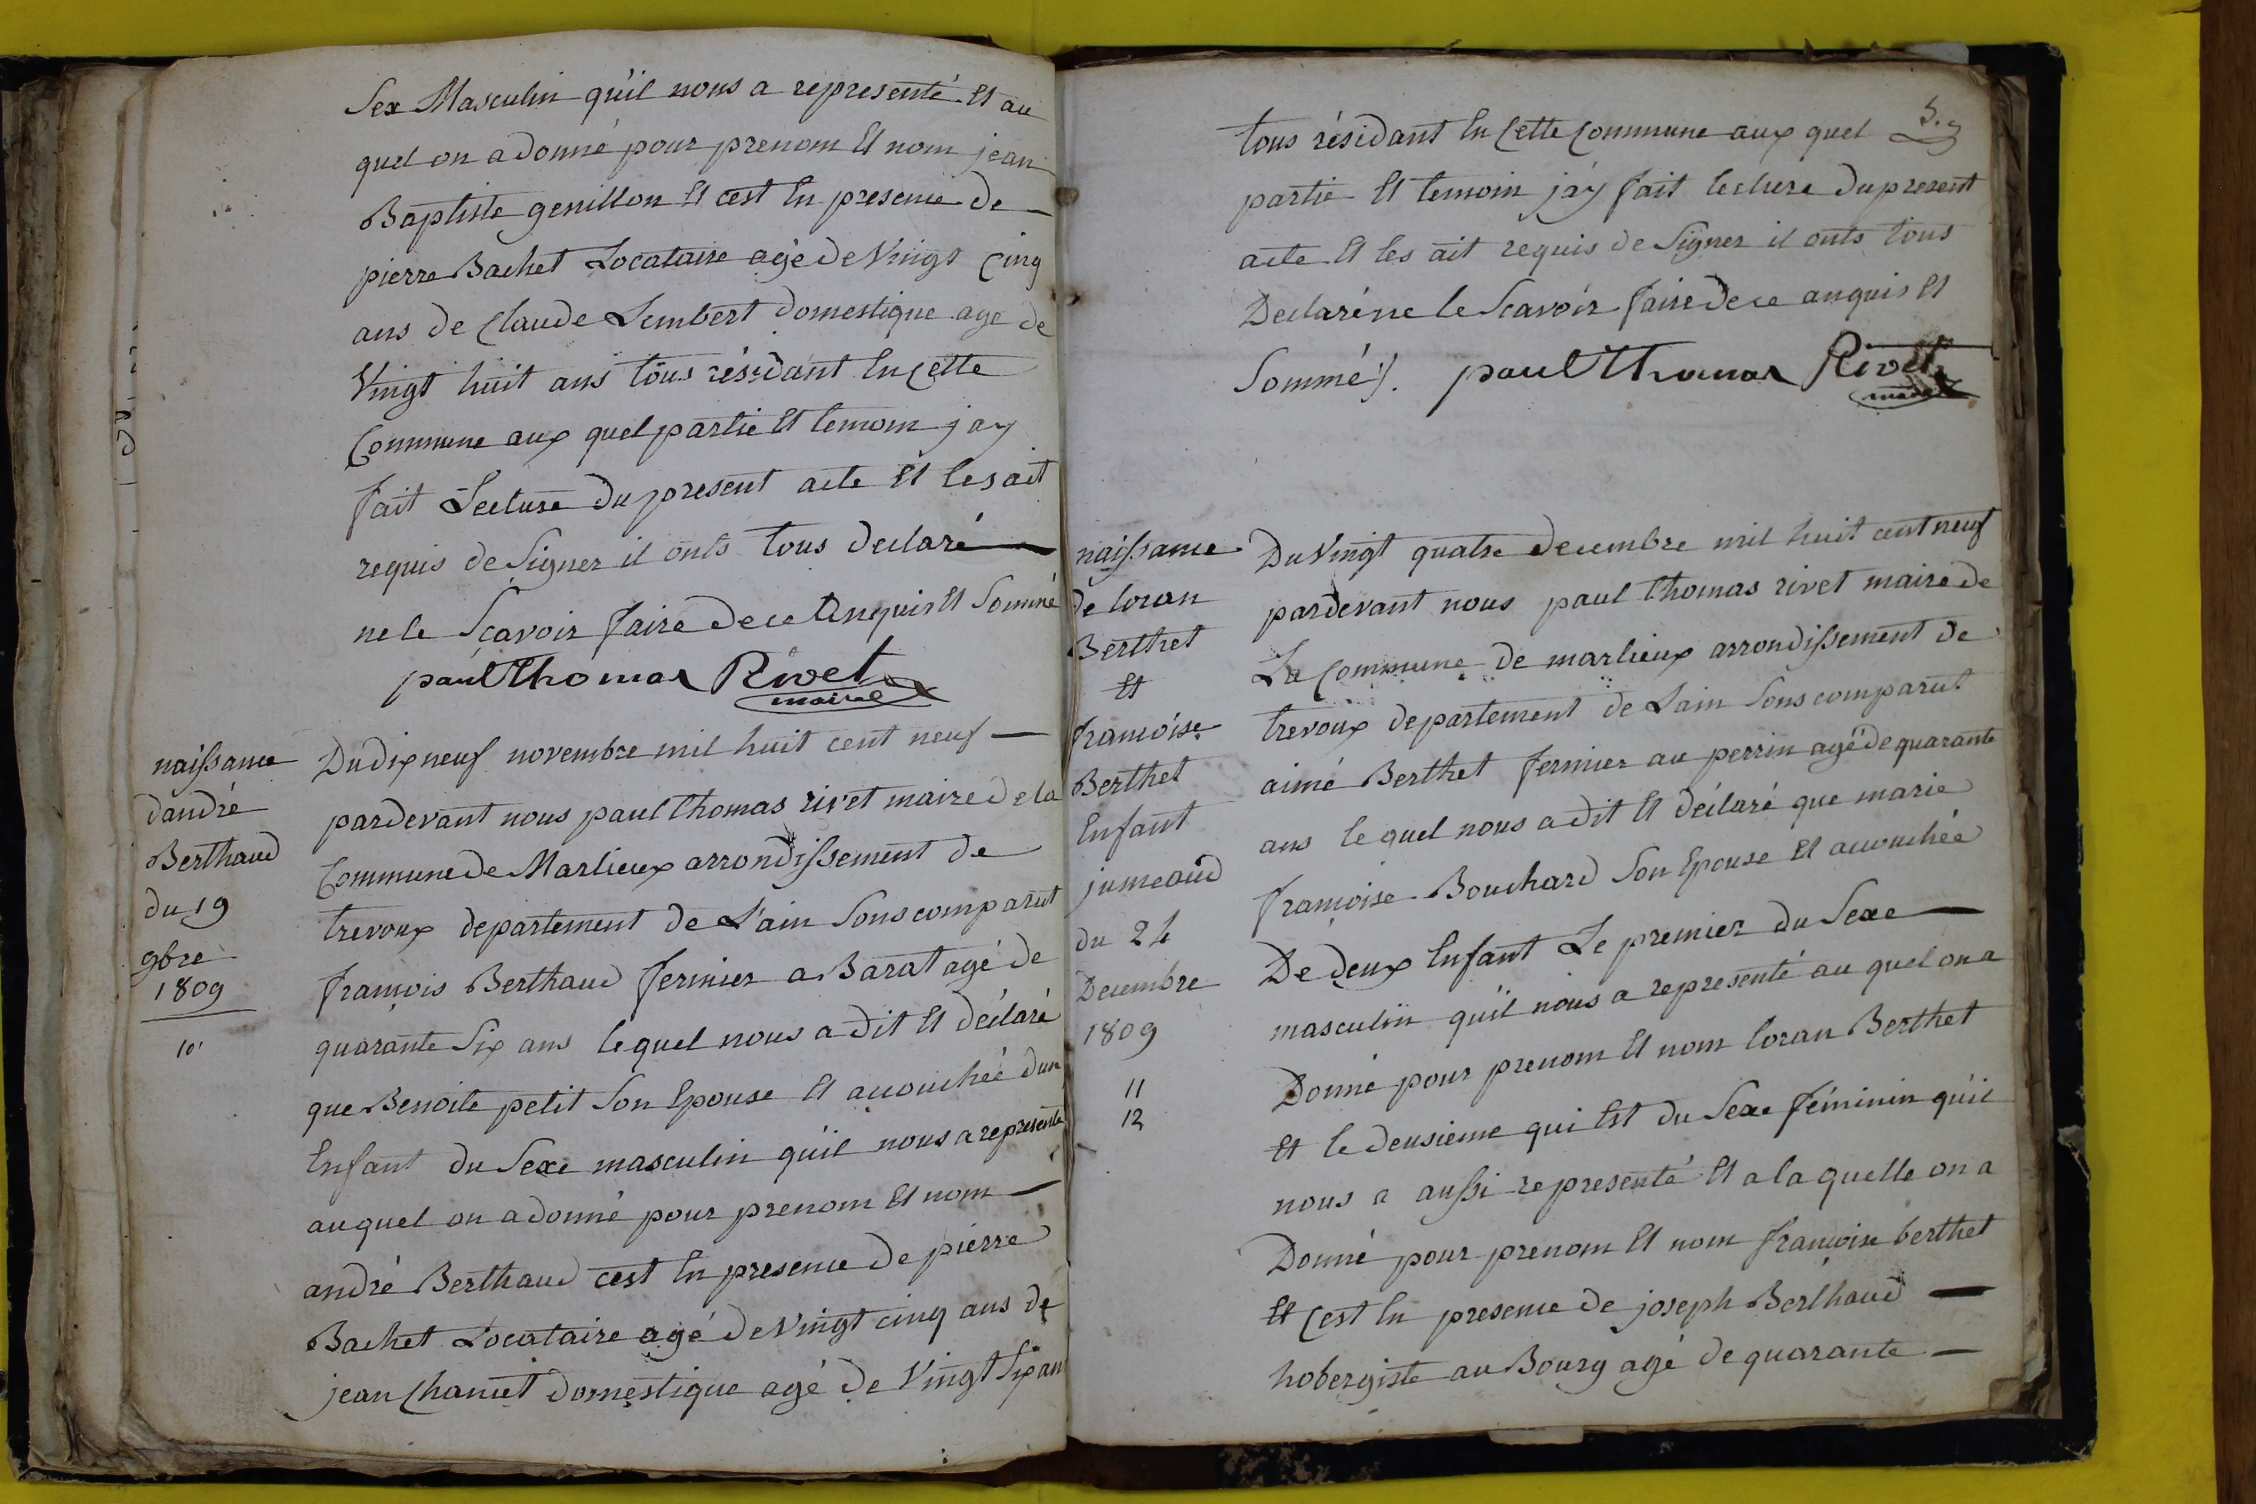 Sex Masculin qu'il nous a representé Et au
quel on a donné pour prenom Et nom jean
Baptiste genillon Et cest En presence de
pierre Bachet Locataire agé de Vingt Cinq
ans de Claude Lembert domestique agé de
Vingt huit ans tous résidant En Cette
Commune aux quel partie Et temoin jay
fait Lecture du present acte Et les ait
requis de Signer il onts tous declaré
ne le Sçavoir faire de ce Anquis Et Sommé
paul Thomas Rivet
maire
naissance
dandré
Berthaud
du 19
9bre
1809
10
Du dix neuf novembre mil huit cent neuf
pardevant nous paul thomas rivet maire de la
Commune de Marlieux arrondissement de
trevoux departement de L'ain Sons comparut
françois Berthaud fermier a Barat agé de
quarante Six ans le quel nous a dit Et déclaré
que Benoite petit Son Epouse Et acouchée dun
Enfant du Sexe masculin qu'il nous a representé
au quel on a donné pour prenom Et nom
andré Berthaud cest En presence de pierre
Bachet Locataire agé de Vingt cinq ans de
jean Chanut domestique agé de Vingt Six ans
5.
tous résidant En Cette Commune aux quel
partie Et temoin jáy fait lecture du present
acte Et les ait requis de Signer il onts tous
Declaré ne le Scavoir faire de ce anquis Et
Sommé /. paul Thomas Rivet
maire
naissance
de loran
Berthet
Et
françoise
Berthet
Enfant
jumeaud
du 24
Decembre
1809
11
12
Du Vingt quatre decembre mil huit cent neuf
pardevant nous paul thomas rivet maire de
La Commune de marlieux arrondissement de
trevoux departement de Lain Sons comparut
aimé Berthet fermier au perrin agé de quarante
ans le quel nous a dit Et déclaré que marie
françoise Bouchard Son Epouse Et acouchée
De deux Enfant Le premier du Sexe
masculin qu'il nous a representé au quel on a
Donné pour prenom Et nom loran Berthet
Et le deusieme qui Est du Sexe féminin qu'il
nous a aussi representé Et a la quelle on a
Donné pour prenom Et nom françoise berthet
Et Cest En presence de joseph Berthaud
hobergiste au Bourg agé de quarante